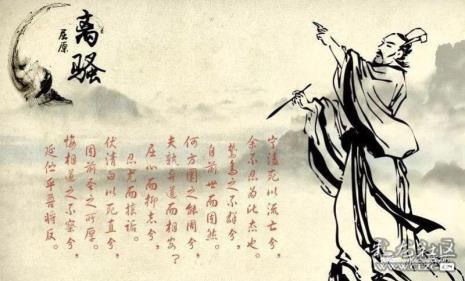 离骚
屈原
宁溘死以流亡兮，
余不忍为此态也。
鸷鸟之不群兮，
自前世而固然。
何方圜之能周兮，
夫孰异道而相安？
屈心而抑志兮，
忍尤而攘诟。
伏清白以死直兮，
固前圣之所厚。
悔相道之不察兮，
延伫乎吾将反。